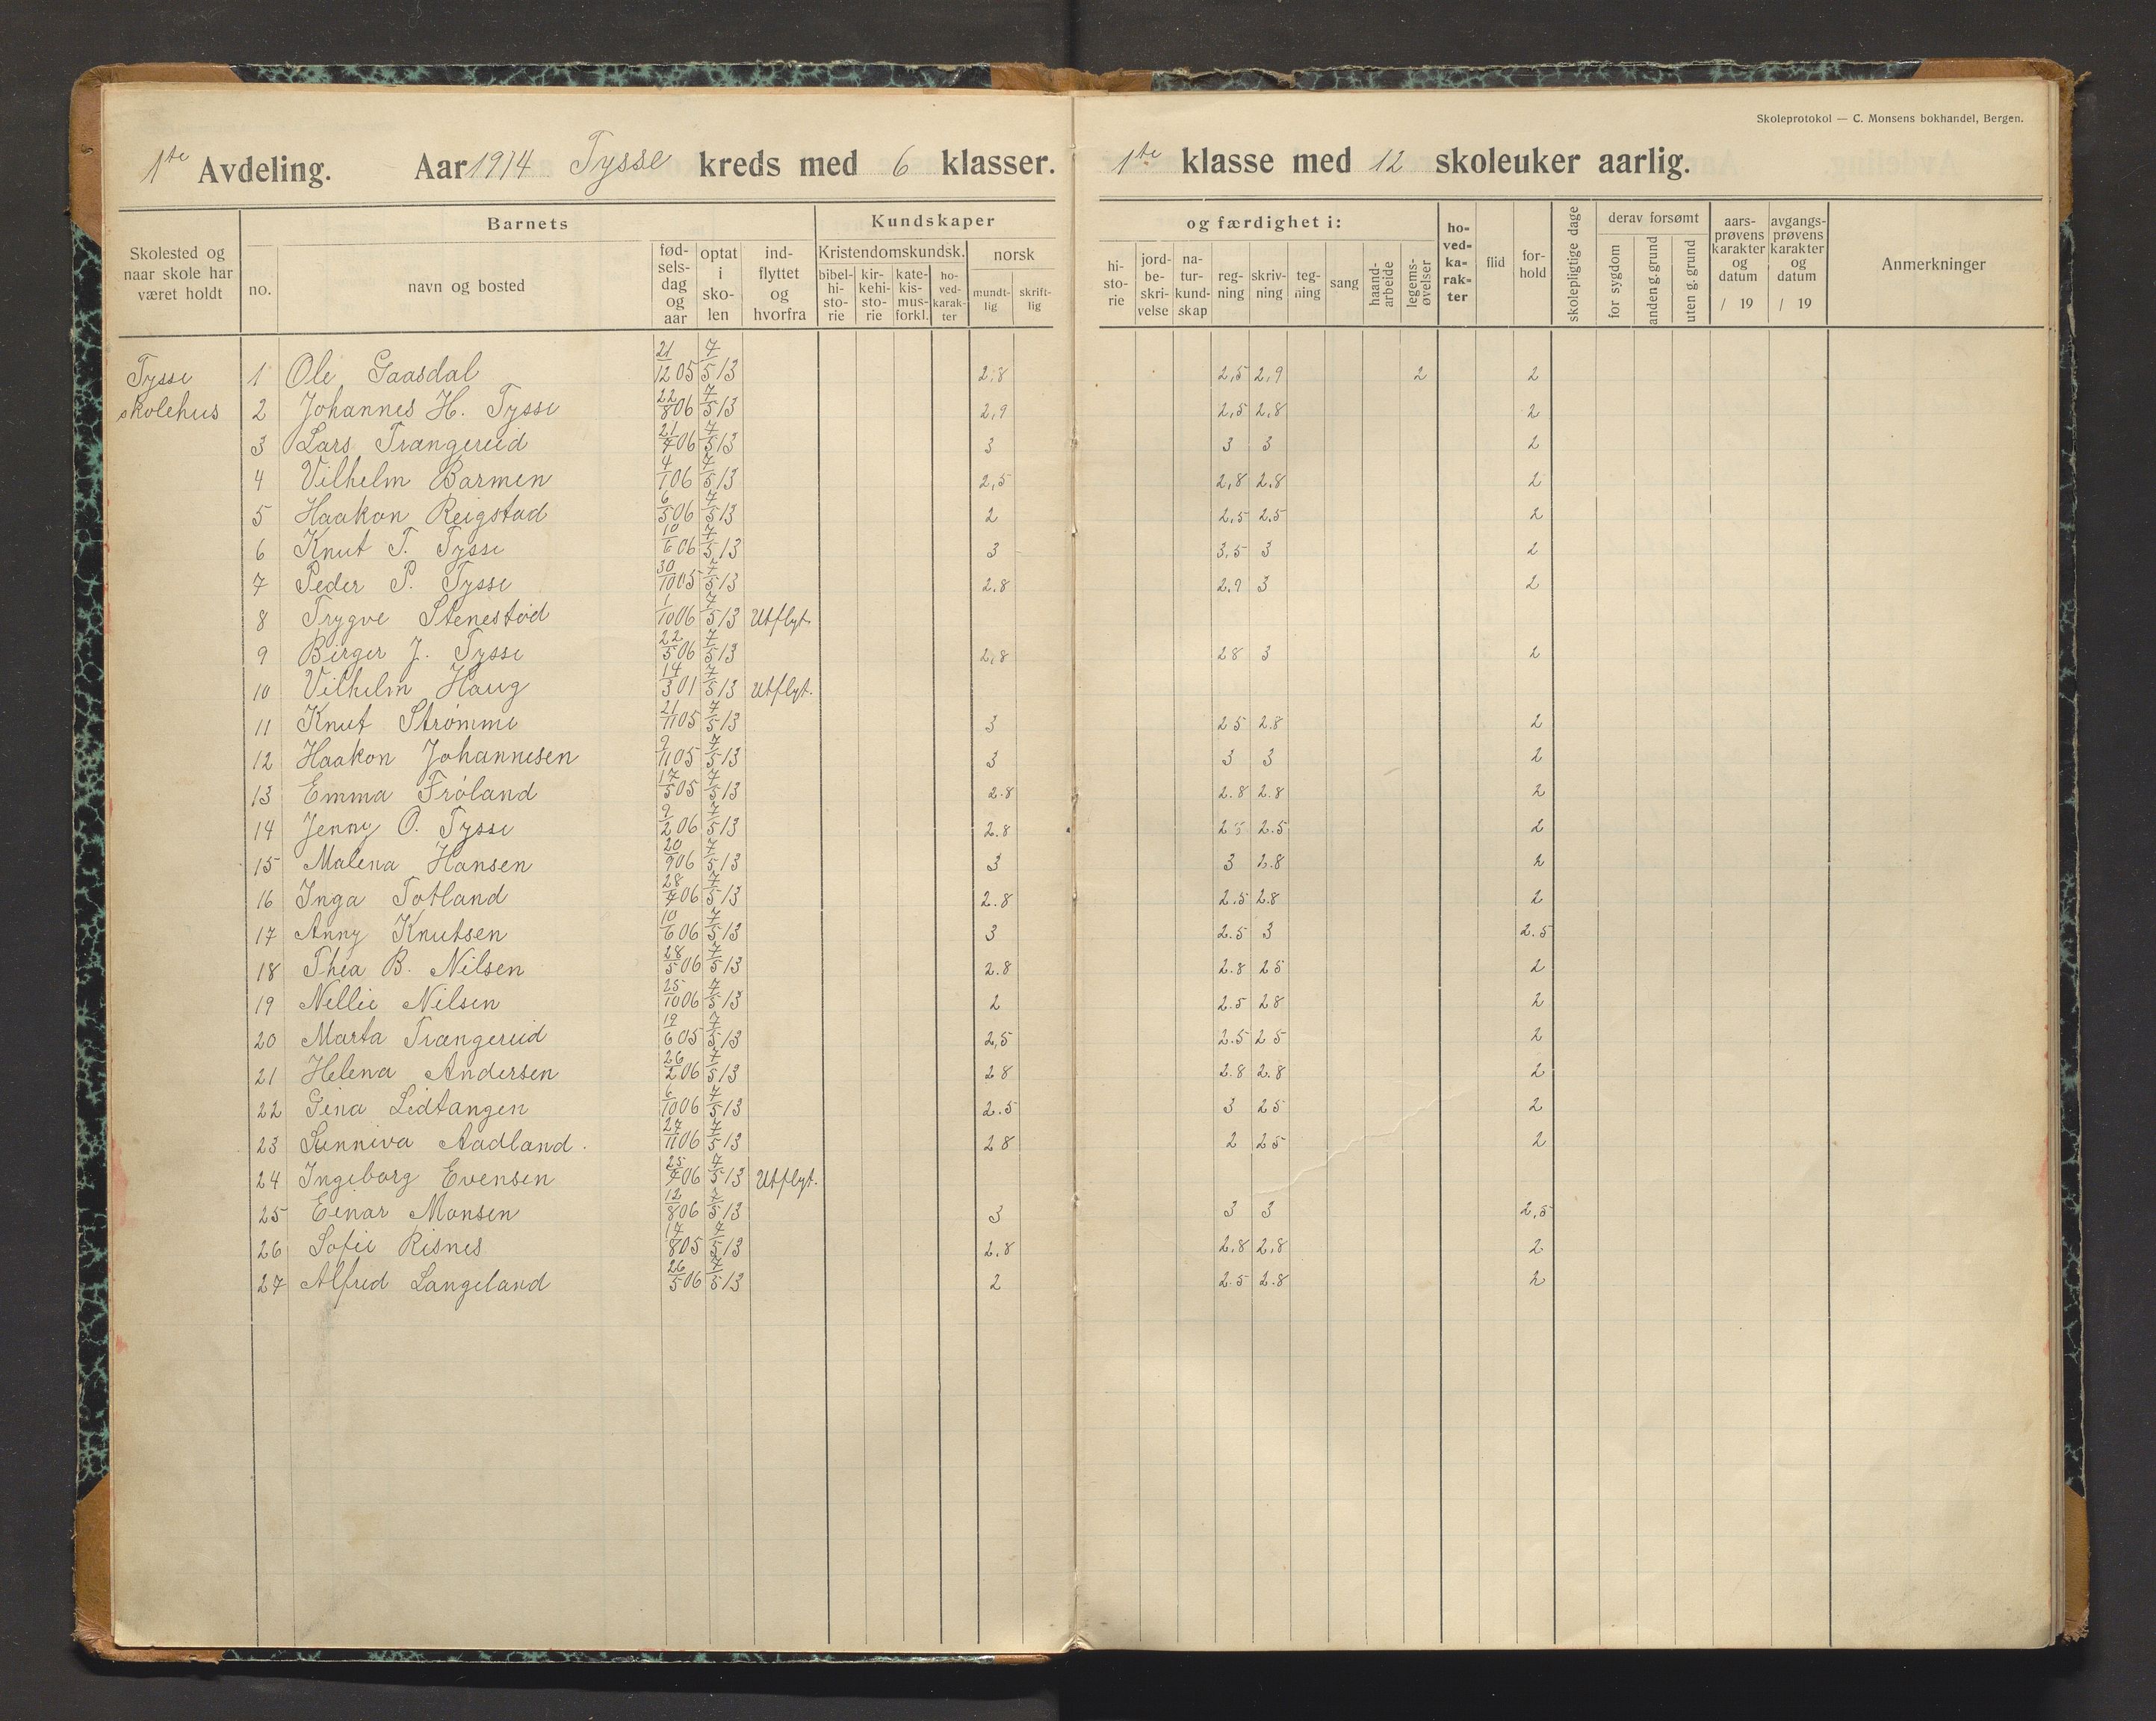 Skoleprotokol — C. Monsens bokhandel, Bergen.
1te Avdeling. Aar 1914 Tysse kreds med 6 klasser. 1te klasse med 12 skoleuker aarlig.
Skolested og naar skole har været holdt
Barnets
no.
navn og bosted
fød-sels-dag og aar
optat i sko-len
ind-flyttet og hvorfra
Kundskaper
Kristendomskundsk.
bibel-hi-sto-rie
kir-kehi-sto-rie
kate-kis-mus-forkl.
ho-ved-karak-ter
norsk
mundt-lig
skrift-lig
og færdighet i:
hi-sto-rie
jord-be-skri-velse
na-tur-kund-skap
reg-ning
skriv-ning
teg-ning
sang
haand-arbeide
legems-øvelser
ho-ved-ka-rak-ter
flid
for-hold
skolepligtige dage
derav forsømt
for sygdom
anden g. grund
uten g. grund
aars-prøvens karakter og datum / 19
avgangs-prøvens karakter og datum / 19
Anmerkninger
Tysse 1 Ole Gaasdal 21/12 05 7/5 13 2.8 2,5 2,9 2 2
skolehus 2 Johannes H. Tysse 22/8 06 7/5 13 2,9 2,5 2,8 2
3 Lars Trængereid 21/7 06 7/5 13 3 3 3 2
4 Vilhelm Barmen 4/1 06 7/5 13 2,5 2,8 2.8 2
5 Haakon Reigstad 6/5 06 7/5 13 2 2,5 2.5 2
6 Knut T. Tysse 10/6 06 7/5 13 3 3,5 3 2
7 Peder P. Tysse 30/10 05 7/5 13 2.8 2.9 3 2
8 Trygve Stenestød 1/10 06 7/5 13 Utflyt.
9 Birger J. Tysse 22/5 06 7/5 13 2,8 28 3 2
10 Vilhelm Haug 14/3 01 7/5 13 Utflyt.
11 Knut Strømme 21/11 05 7/5 13 3 25 2.8 2
12 Haakon Johannesen 9/11 05 7/5 13 3 3 3 2
13 Emma Frøland 17/5 05 7/5 13 2.8 2.8 2.8 2
14 Jenny O. Tysse 9/2 06 7/5 13 2.8 25 2.5 2
15 Malena Hansen 20/9 06 7/5 13 3 3 2.8 2
16 Inga Totland 28/7 06 7/5 13 2.8 2.5 2.8 2
17 Anny Knutsen 10/6 06 7/5 13 3 2.5 3 2.5
18 Thea B. Nilsen 28/5 06 7/5 13 2.8 2.8 25 2
19 Nellie Nilsen 25/10 06 7/5 13 2 2.5 28 2
20 Marta Trængereid 19/6 05 7/5 13 2,5 2.5 25 2
21 Helena Andersen 26/2 06 7/5 13 28 2.8 2.8 2
22 Gina Lidtangen 6/10 06 7/5 13 2.5 3 25 2
23 Sunniva Aadland. 27/11 06 7/5 13 28 2 25 2
24 Ingeborg Evensen 25/7 06 7/5 13 Utflyt.
25 Einar Monsen 12/8 06 7/5 13 3 3 3 2,5
26 Sofie Risnes 17/8 05 7/5 13 2.8 2,8 2,8 2
27 Alfred Langeland 26/5 06 7/5 13 2 2.5 2.8 2